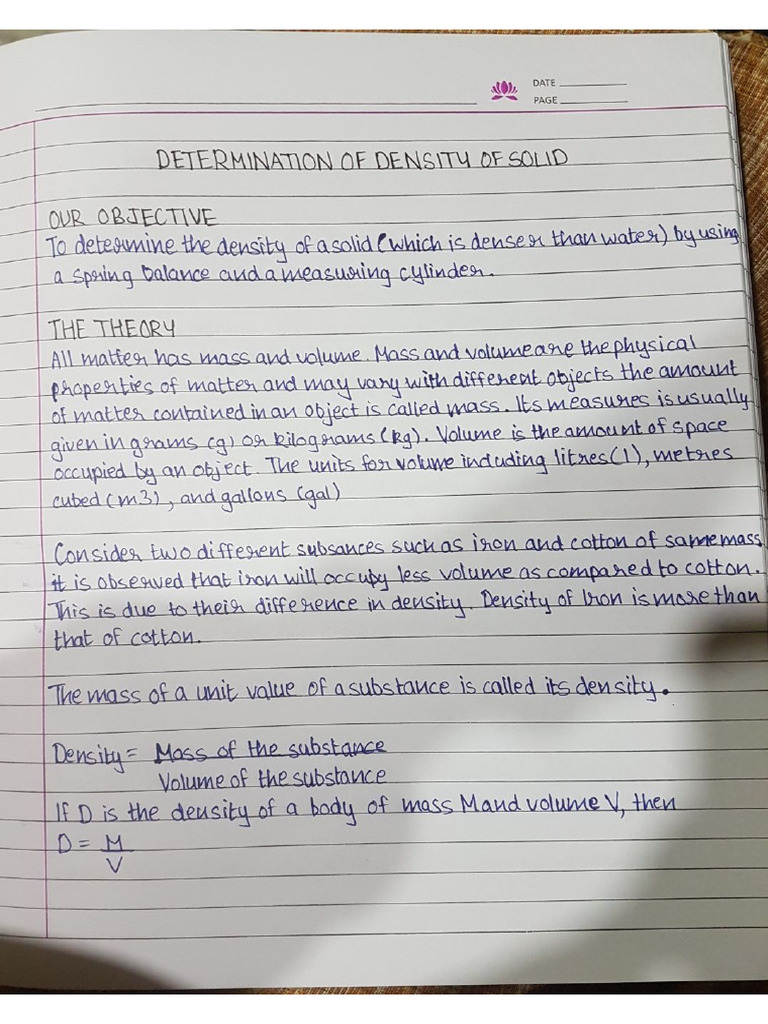 DATE
PAGE
DETERMINATION OF DENSITY OF SOLID
OUR OBJECTIVE
To determine the density of a solid (which is denser than water) by using
a spring balance and a measuring cylinder.
THE THEORY
All matter has mass and volume. Mass and volume are the physical
properties of matter and may vary with different objects the amount
of matter contained in an object is called mass. Its measures is usually
given in grams (g) or kilograms (kg). Volume is the amount of space
occupied by an object. The units for volume including litres (l), metres
cubed (m3), and gallons (gal)
Consider two different subsances such as iron and cotton of same mass
it is observed that iron will occupy less volume as compared to cotton.
This is due to their difference in density. Density of Iron is more than
that of cotton.
The mass of a unit value of a substance is called its density.
Density = Mass of the substance
Volume of the substance
If D is the density of a body of mass M and volume V, then
D = M
V